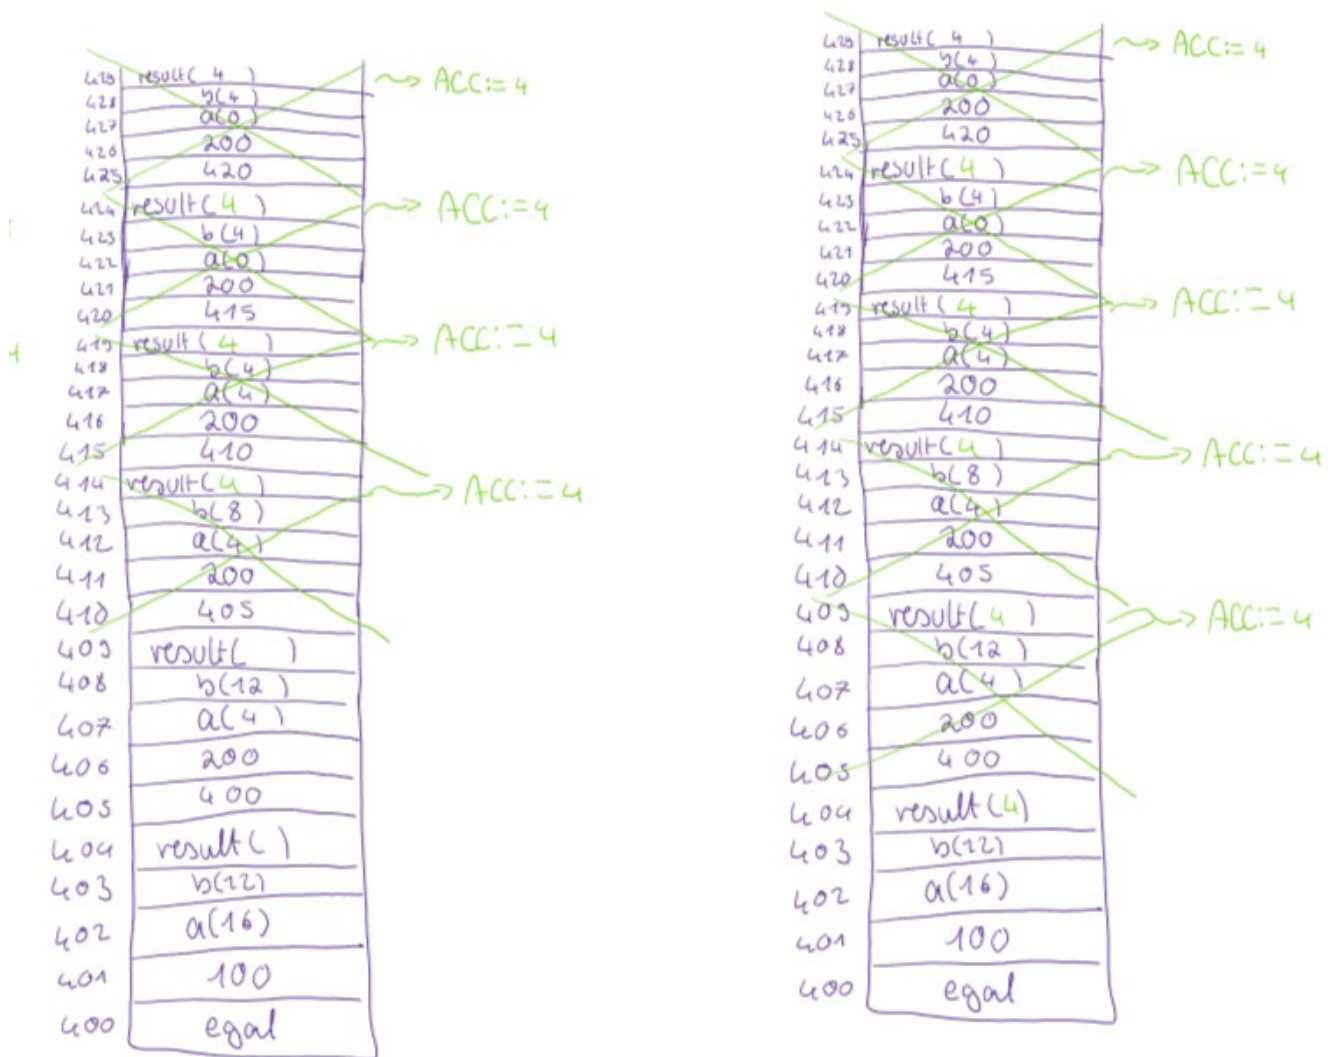 429 result( 4 ) ACC:=4
428 b(4)
427 a(0)
426 200
425 420
424 result(4) ACC:=4
423 b(4)
422 a(0)
421 200
420 415
419 result(4) ACC:=4
418 b(4)
417 a(4)
416 200
415 410
414 result(4) ACC:=4
413 b(8)
412 a(4)
411 200
410 405
409 result( )
408 b(12)
407 a(4)
406 200
405 400
404 result( )
403 b(12)
402 a(16)
401 100
400 egal
429 result( 4 ) ACC:=4
428 b(4)
427 a(0)
426 200
425 420
424 result(4) ACC:=4
423 b(4)
422 a(0)
421 200
420 415
419 result(4) ACC:=4
418 b(4)
417 a(4)
416 200
415 410
414 result(4) ACC:=4
413 b(8)
412 a(4)
411 200
410 405
409 result(4) ACC:=4
408 b(12)
407 a(4)
406 200
405 400
404 result(4)
403 b(12)
402 a(16)
401 100
400 egal